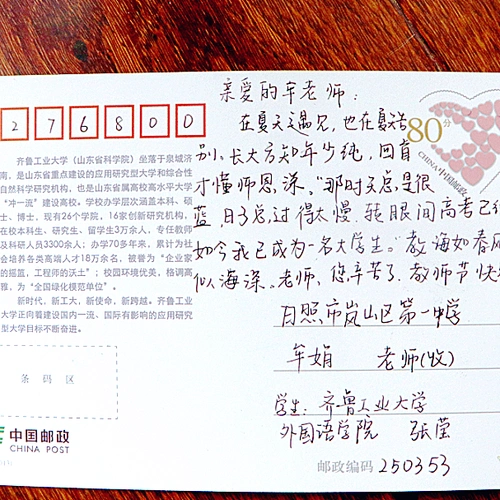 276800
齐鲁工业大学（山东省科学院）坐落于泉城济
南，是山东省重点建设的应用研究型大学和综合性
自然科学研究机构，也是山东省属高校高水平大学
“冲一流”建设高校。学校办学层次涵盖本科、硕
士、博士，现有26个学院，16家创新研究机构，
在校本科生、研究生、留学生3万余人，专任教师
及科研人员3300余人；办学70多年来，累计为社
会培养各类高端人才18万余名，被誉为“企业家
的摇篮，工程师的沃土”；校园环境优美，格调高
雅，为“全国绿化模范单位”。
新时代，新工大，新使命，新跨越。齐鲁工业
大学正向着建设国内一流、国际有影响的应用研究
型大学目标不断奋进。
条码区
中国邮政
CHINA POST
80分
CHINA 中国邮政
亲爱的牟老师：
在夏天遇见，也在夏天告
别，长大方知年少纯，回首
才懂师恩深。“那时天总是很
蓝，日子总过得太慢，转眼间高考已
如今我已成为一名大学生。教诲如春风
似海深。老师，您辛苦了，教师节快
日照市岚山区第一中学
牟娟 老师(收)
学生：齐鲁工业大学
外国语学院 张莹
邮政编码 250353